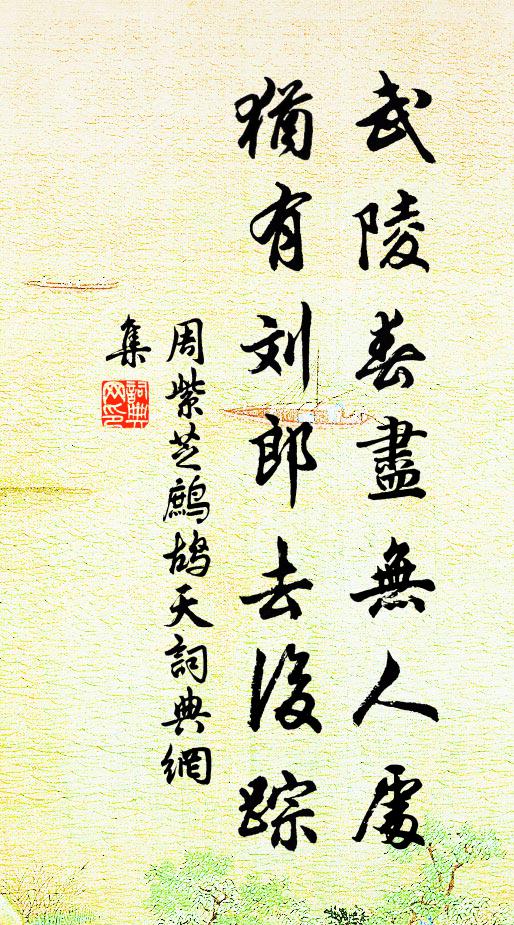 武陵春盡無人處
猶有刘郎去後踪
周紫芝鷓鴣天詞典網
集
詞典
网印